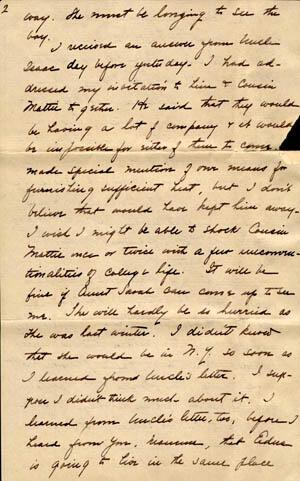 2
way. She must be longing to see the
boy.
I received an answer from Uncle
Isaac day before yesterday. I had ad-
dressed my invitation to him & Cousin
Mattie together. He said that they would
be having a lot of company & it would
be impossible for either of them to come.
made special mention of our means for
furnishing sufficient heat, but I don't
believe that would have kept him away.
I wish I might be able to shock Cousin
Mattie once or twice with a few unconven-
tionalities of College life. It will be
fine if Aunt Sarah can come up to see
me. She will hardly be so hurried as
she was last winter. I didn't know
that she would be in N.Y. so soon as
I learned from Uncle's letter. I sup-
pose I didn't think much about it. I
learned from Uncle's letter, too, before I
heard from you, Mamma, that Edna
is going to live in the same place